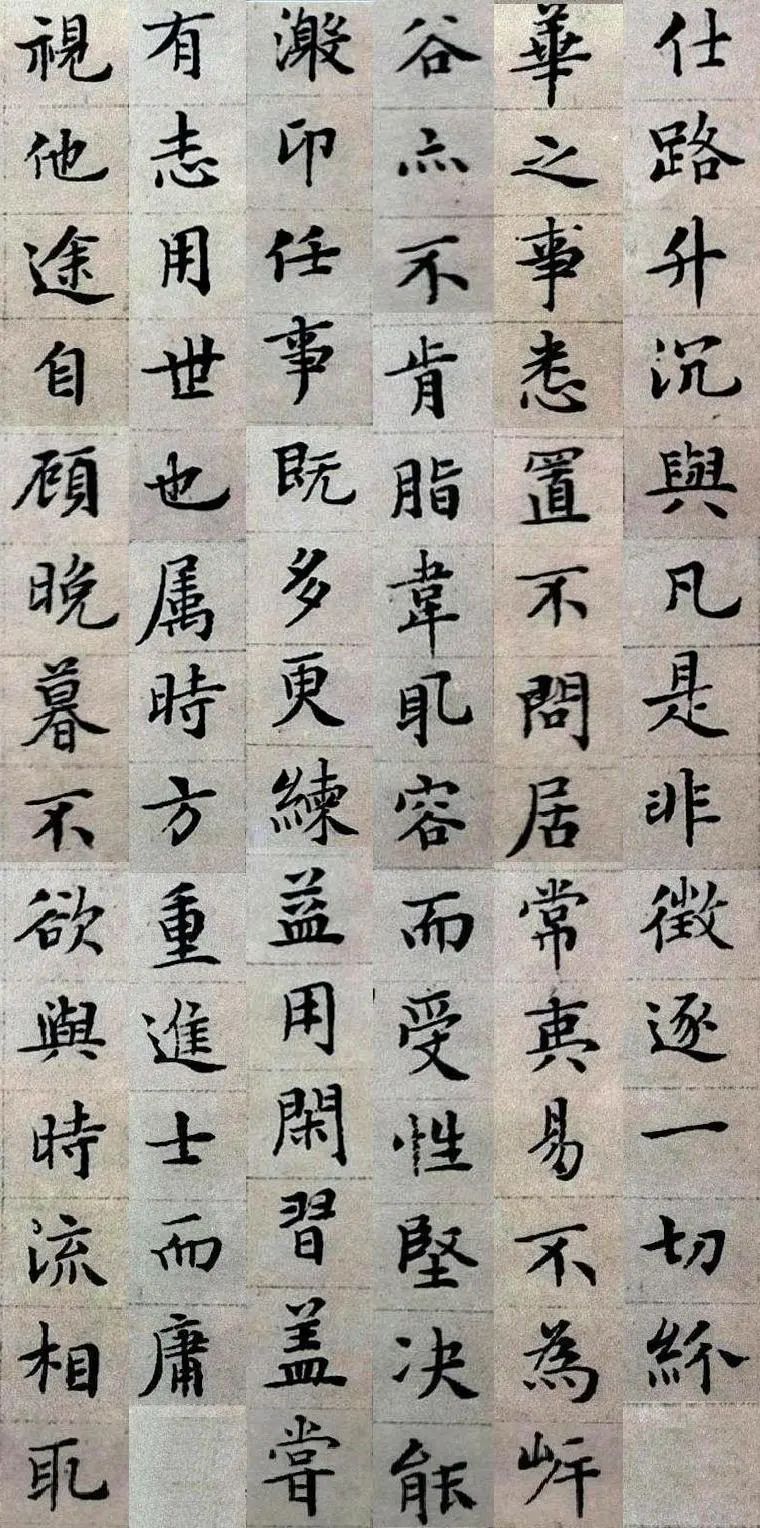 仕路升沉與凡是非徴逐一切紛
華之事悉置不問居常夷易不為岸
谷亦不肯脂韋取容而受性堅决能
激卬任事既多更練益用閑習盖嘗
有志用世也属時方重進士而庸
視他途自顧晚暮不欲與時流相取